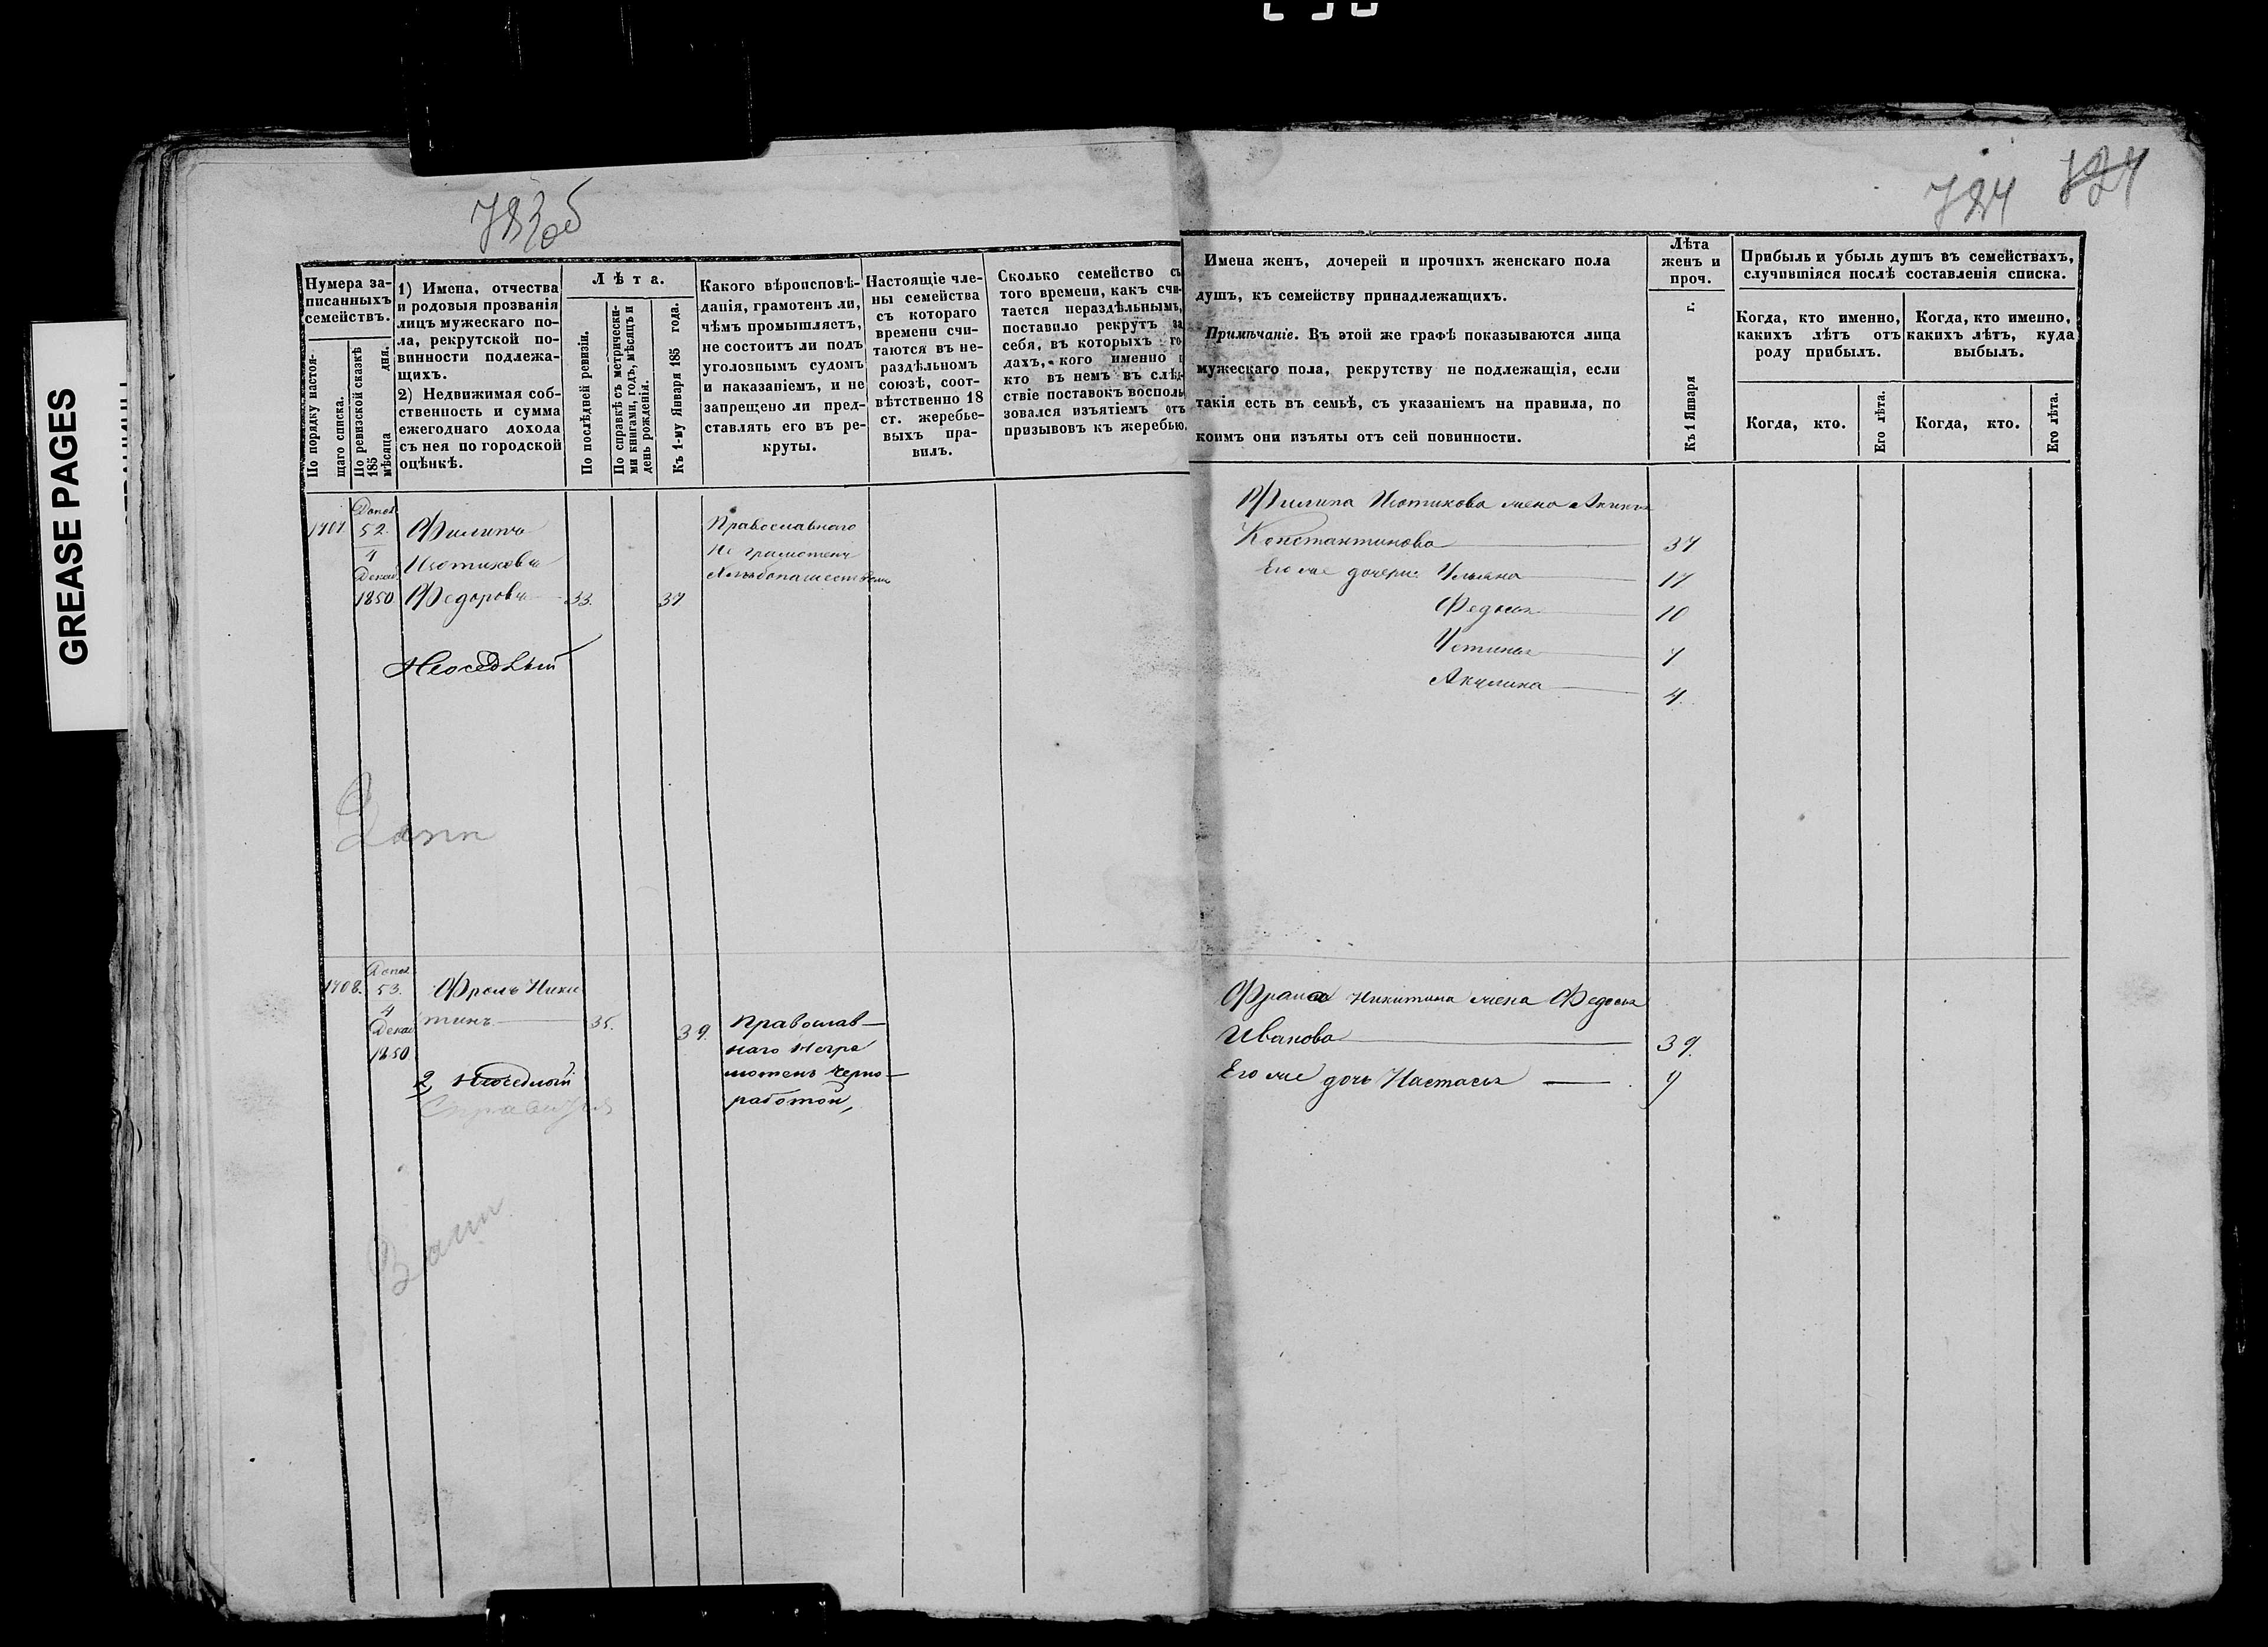 GREASE PAGES
783об
784
784
Нумера за-
писанныхъ
семействъ.
По порядку настоя-
щаго списка.
По ревизской сказкѣ
185
мѣсяца дня.
1) Имена, отчества
и родовыя прозванія
лицъ мужескаго по-
ла, рекрутской по-
винности подлежа-
щихъ.
2) Недвижимая соб-
ственность и сумма
ежегоднаго дохода
съ нея по городской
оцѣнкѣ.
Лѣта.
По послѣдней ревизіи.
По справкѣ съ метрически-
ми книгами, годъ, мѣсяцъ и
день рожденія.
Къ 1-му Января 185 года.
Какого вѣроисповѣ-
данія, грамотенъ ли,
чѣмъ промышляетъ,
не состоитъ ли подъ
уголовнымъ судомъ
и наказаніемъ, и не
запрещено ли пред-
ставлять его въ ре-
круты.
Настоящіе чле-
ны семейства
съ котораго
времени счи-
таются въ не-
раздѣльномъ
союзѣ, соот-
вѣтственно 18
ст. жеребье-
выхъ пра-
вилъ.
Сколько семейство съ
того времени, какъ счи-
тается нераздѣльнымъ,
поставило рекрутъ за
себя, въ которыхъ го-
дахъ, кого именно и
кто въ немъ въ слѣд-
ствіе поставокъ восполь
зовался изъятіемъ отъ
призывовъ къ жеребью.
Имена женъ, дочерей и прочихъ женскаго пола
душъ, къ семейству принадлежащихъ.
Примѣчаніе. Въ этой же графѣ показываются лица
мужескаго пола, рекрутству не подлежащія, если
такія есть въ семьѣ, съ указаніемъ на правила, по
коимъ они изъяты отъ сей повинности.
Лѣта
женъ и
проч.
Къ 1 Января г.
Прибыль и убыль душъ въ семействахъ,
случившіяся послѣ составленія списка.
Когда, кто именно,
какихъ лѣтъ отъ
роду прибылъ.
Когда, кто именно,
какихъ лѣтъ, куда
выбылъ.
Когда, кто.
Его лѣта.
Когда, кто.
Его лѣта.
1707
Допол
52.
4
Декаб
1850
Филипъ
Изотиковъ
Федоровъ 33. 37
Неоседлый
Православнаго
Не грамотенъ
Хлебопашествомъ
Филипа Изотикова жена
Константинова 37
Его же дочери: Ульяна 17
Федосья 10
Устинья 7
Акулина 4.
1708.
Допол
53.
4
Декаб
1850
Фролъ Ники
тинъ 35. 39.
2, Неоседлый
Православ
наго Негра
мотенъ Черно
работой,
Фрола Никитина жена Федосья
Иванова 39.
Его же дочь Настасья 9